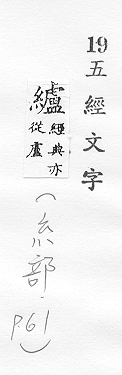 19五經文字
纑經典亦
從盧
(糸部.
P.61)